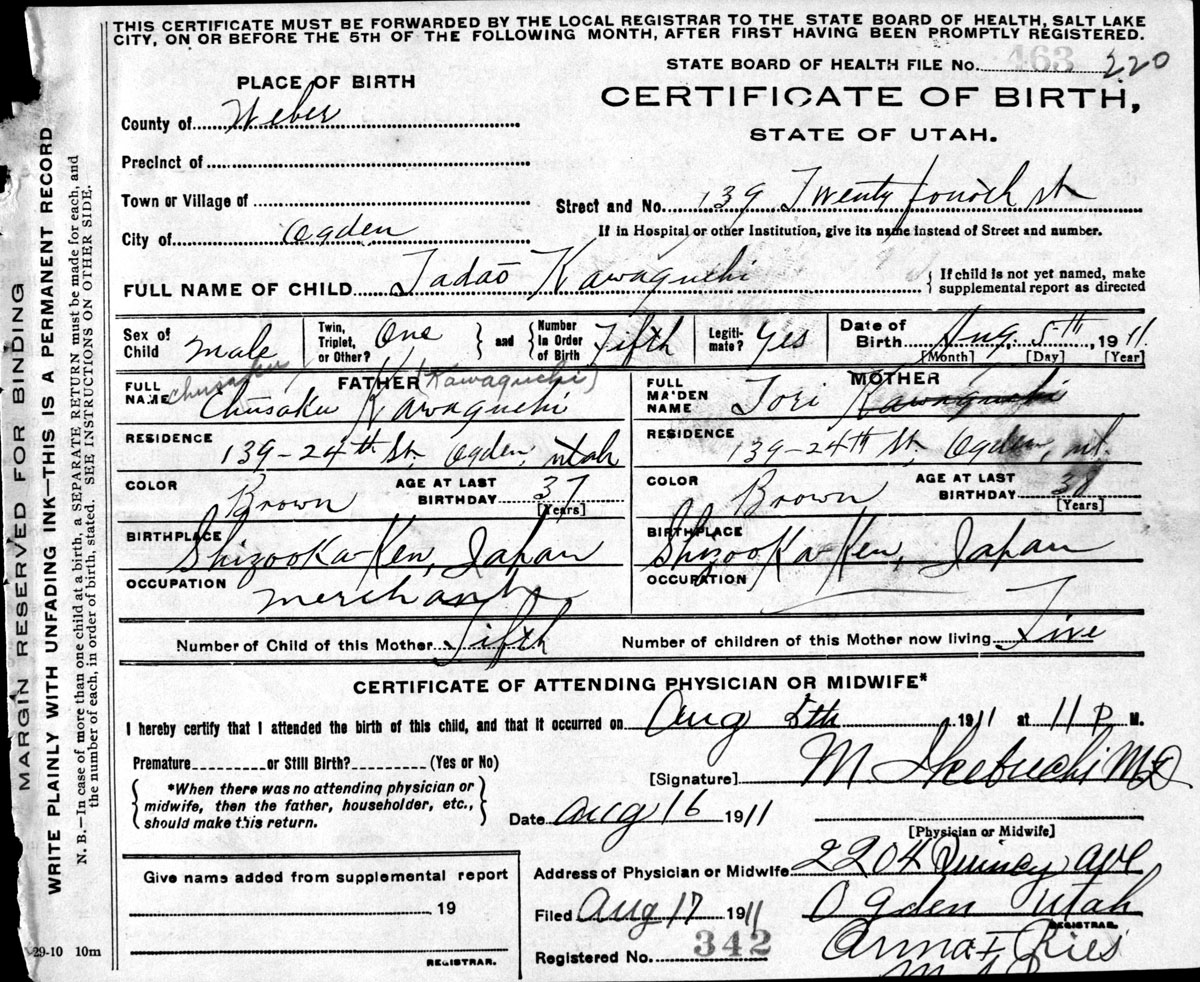 THIS CERTIFICATE MUST BE FORWARDED BY THE LOCAL REGISTRAR TO THE STATE BOARD OF HEALTH, SALT LAKE
CITY, ON OR BEFORE THE 5TH OF THE FOLLOWING MONTH, AFTER FIRST HAVING BEEN PROMPTLY REGISTERED.
STATE BOARD OF HEALTH FILE No. 463 220
PLACE OF BIRTH
CERTIFICATE OF BIRTH,
County of Weber
STATE OF UTAH.
Precinct of
Town or Village of
Street and No. 139 Twenty fourth st
City of Ogden
If in Hospital or other Institution, give its name instead of Street and number.
FULL NAME OF CHILD Tadao Kawaguchi
{ If child is not yet named, make
supplemental report as directed
Sex of Child Male
Twin, Triplet, or Other? One
and
Number In Order of Birth Fifth
Legiti-mate? Yes
Date of Birth Aug. 5th, 1911.
[Month] [Day] [Year]
FATHER (Kawaguchi)
FULL NAME Chusaku Kawaguchi
MOTHER
FULL MAIDEN NAME Tori Kawaguchi
RESIDENCE 139-24th St. Ogden, Utah
RESIDENCE 139-24th St, Ogden, ut.
COLOR Brown
AGE AT LAST BIRTHDAY 37
[Years]
COLOR Brown
AGE AT LAST BIRTHDAY
[Years]
BIRTHPLACE Shizooka-Ken, Japan
BIRTHPLACE Shizooka-Ken, Japan
OCCUPATION merchant
OCCUPATION
Number of Child of this Mother Fifth
Number of children of this Mother now living Five
CERTIFICATE OF ATTENDING PHYSICIAN OR MIDWIFE*
I hereby certify that I attended the birth of this child, and that it occurred on Aug 5th 1911 at 11 P. M.
Premature or Still Birth? (Yes or No)
[Signature] M Ikebuchi MD
*When there was no attending physician or
midwife, then the father, householder, etc.,
should make this return.
Date Aug 16 1911
[Physician or Midwife]
Give name added from supplemental report
19
REGISTRAR.
Address of Physician or Midwife 2204 Quincy Ave
Ogden Utah
Filed Aug 17 1911
REGISTRAR.
Registered No. 342
Ries
29-10 10m
MARGIN RESERVED FOR BINDING
WRITE PLAINLY WITH UNFADING INK—THIS IS A PERMANENT RECORD
N. B.—In case of more than one child at a birth, a SEPARATE RETURN must be made for each, and
the number of each, in order of birth, stated. SEE INSTRUCTIONS ON OTHER SIDE.